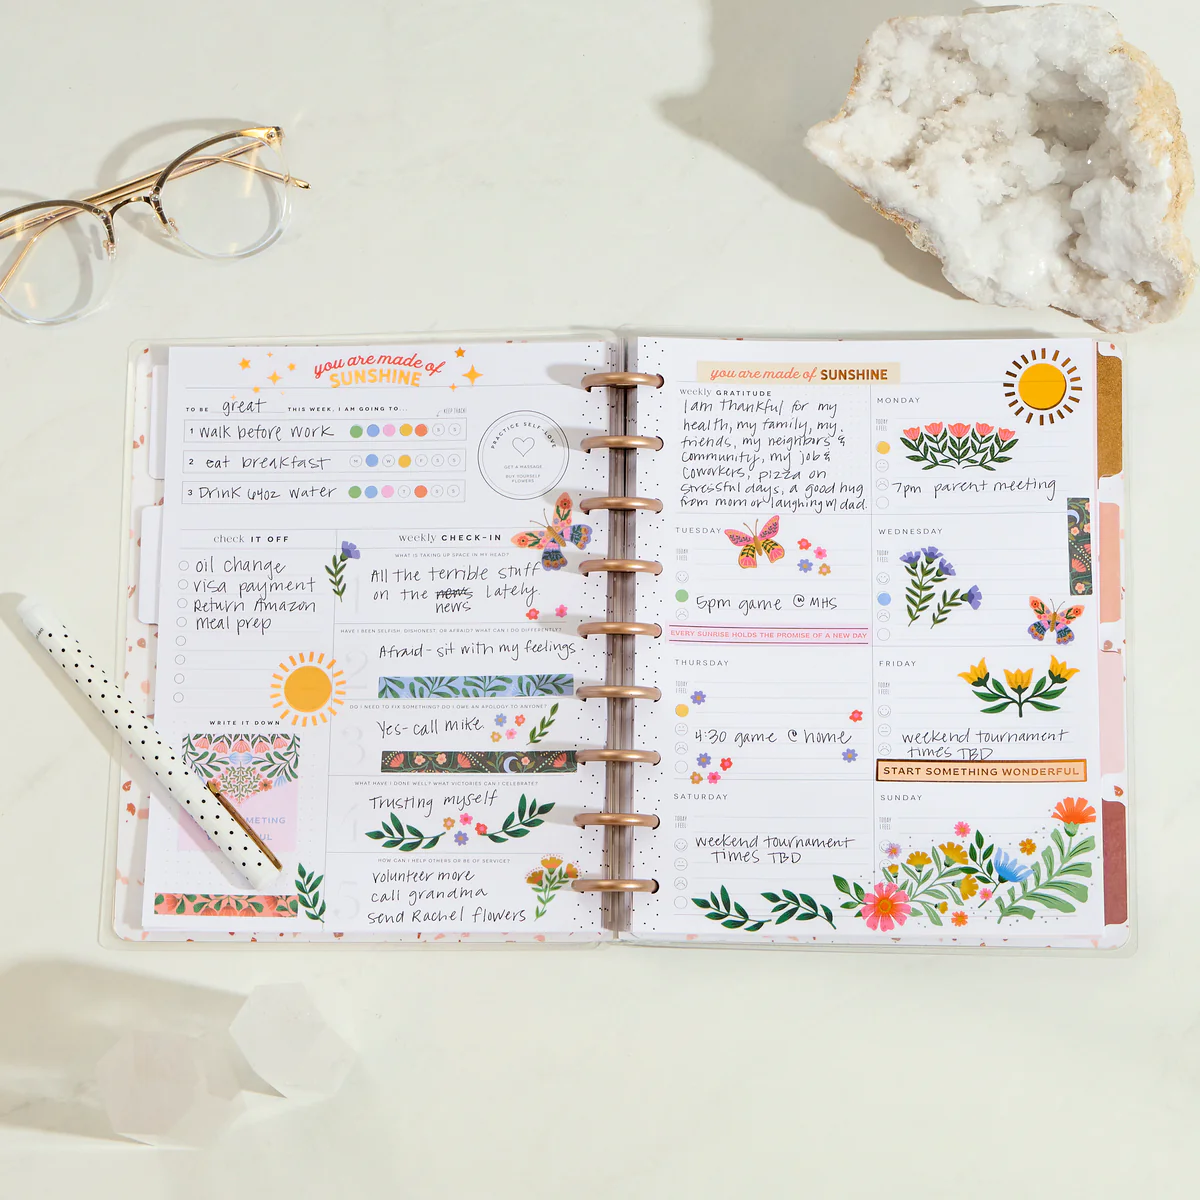 you are made of
SUNSHINE
TO BE great THIS WEEK, I AM GOING TO...
KEEP TRACK!
1 walk before work S S
2 eat breakfast M W F S S
3 Drink 64oz water T S S
PRACTICE SELF-LOVE
GET A MASSAGE
BUY YOURSELF
FLOWERS
check IT OFF
oil change
visa payment
Return Amazon
meal prep
WRITE IT DOWN
METING
UL
weekly CHECK-IN
WHAT IS TAKING UP SPACE IN MY HEAD?
1
All the terrible stuff
on the news lately.
news
HAVE I BEEN SELFISH, DISHONEST, OR AFRAID? WHAT CAN I DO DIFFERENTLY?
2
Afraid - sit with my feelings
DO I NEED TO FIX SOMETHING? DO I OWE AN APOLOGY TO ANYONE?
3
Yes - call mike.
WHAT HAVE I DONE WELL? WHAT VICTORIES CAN I CELEBRATE?
Trusting myself
HOW CAN I HELP OTHERS OR BE OF SERVICE?
5
volunteer more
call grandma
send Rachel flowers
you are made of SUNSHINE
weekly GRATITUDE
I am thankful for my
health, my family, my
friends, my neighbors &
community, my job &
coworkers, pizza on
stressful days, a good hug
from mom or laughing w/ dad.
MONDAY
TODAY
I FEEL
7pm parent meeting
TUESDAY
TODAY
I FEEL
5pm game @ MHS
EVERY SUNRISE HOLDS THE PROMISE OF A NEW DAY
WEDNESDAY
TODAY
I FEEL
THURSDAY
TODAY
I FEEL
4:30 game @ home
FRIDAY
TODAY
I FEEL
weekend tournament
times TBD
START SOMETHING WONDERFUL
SATURDAY
TODAY
I FEEL
weekend tournament
times TBD
SUNDAY
TODAY
I FEEL